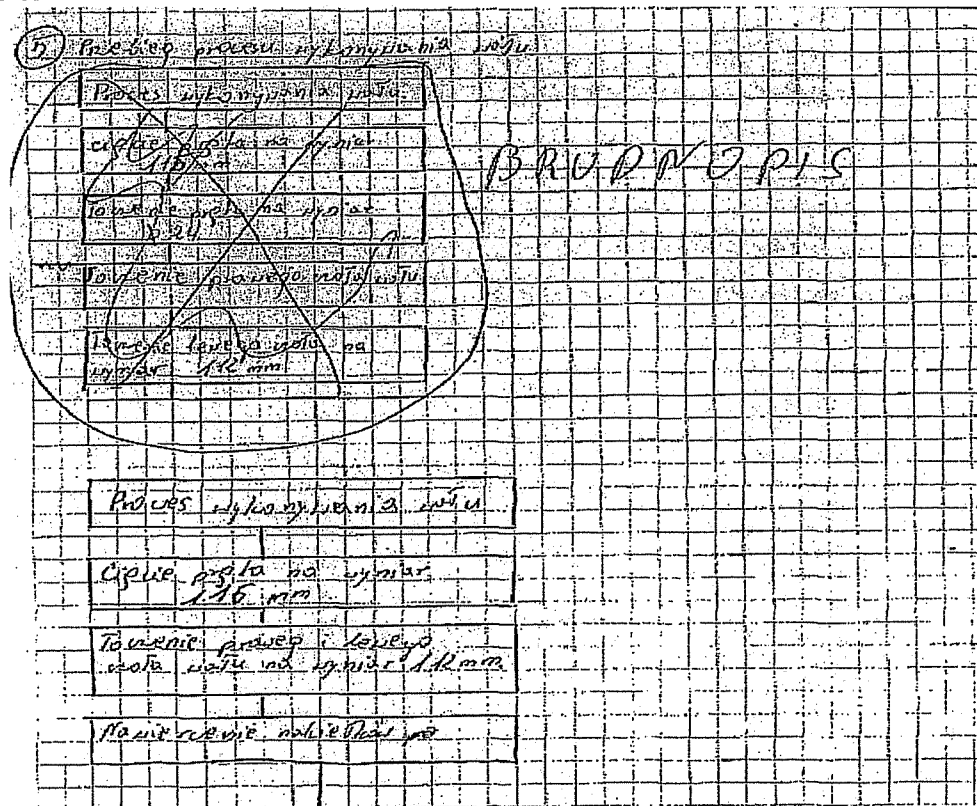 5 Przebieg procesu wykonywania wału
Proces wykonywania wału
cięcie pręta na wymiar
116 mm
Toczenie pręta na wymiar
Toczenie prawego wału
Toczenie lewego na
wymiar 112 mm
BRUDNOPIS
Proces wykonywania wału
Cięcie pręta na wymiar
116 mm
Toczenie prawego i lewego
czoła wału na wymiar 112 mm
Nawiercenie nakiełków